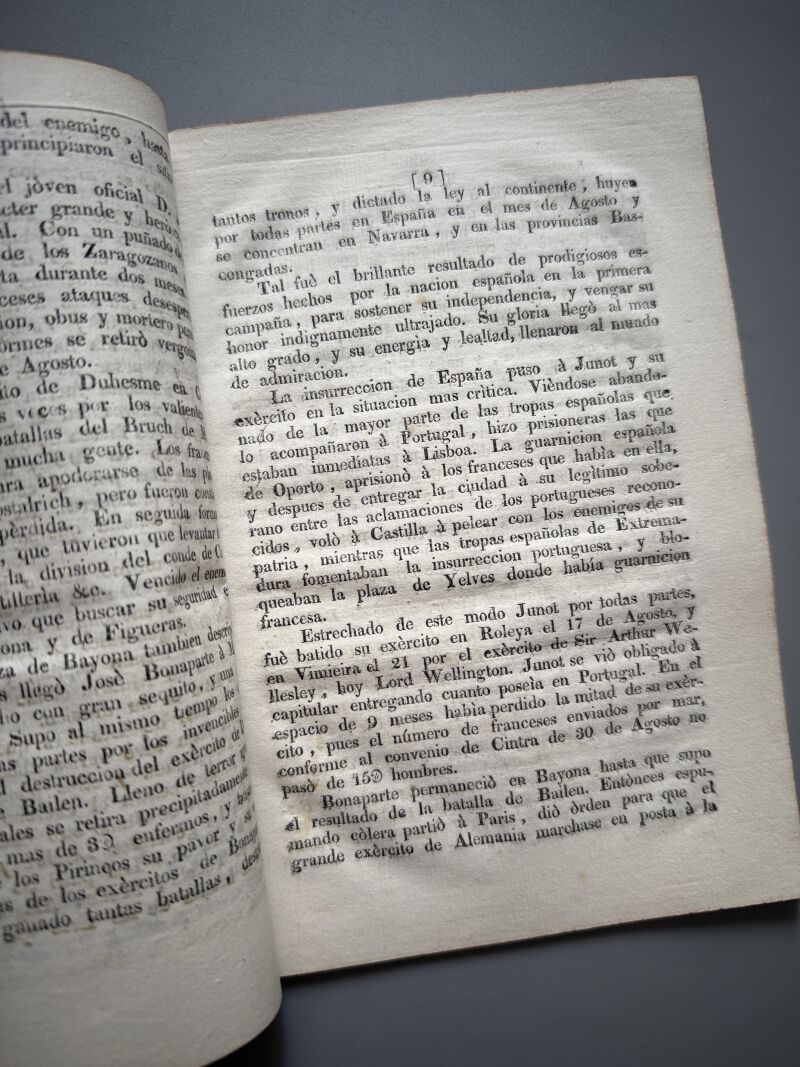 del enemigo, hasta
principiaron el
el jòven oficial D.
cter grande y
al. Con un puñado
de los Zaragozanos
ta durante dos meses
ceses ataques
ion, obus y mortero
ormes se retirò
e Agosto.
ito de Duhesme en
s veces por los valientes
batallas del Bruch de
mucha gente. Los
ra apoderarse de las
ostalrich, pero fueron
pèrdida. En seguida
, que tuvieron que levantar
la division del conde de
tilleria &c. Vencido el
vo que buscar su seguridad
ona y de Figueras.
za de Bayona tambien
s llegò Josè Bonaparte à
ho con gran sequito, y una
Supo al mismo tiempo los
as partes por los invencibles
destruccion del exèrcito de
e Bailen. Lleno de terror
ales se retira precipitadamente
mas de 3Ə enfermos, y
e los Pirineos su pavor y
as de los exèrcitos de
ganado tantas batallas,
[9]
tantos tronos, y dictado la ley al continente, huyen
por todas partes en España en el mes de Agosto y
se concentran en Navarra, y en las provincias Bas-
congadas.
Tal fuè el brillante resultado de prodigiosos es-
fuerzos hechos por la nacion española en la primera
campaña, para sostener su independencia, y vengar su
honor indignamente ultrajado. Su gloria llegò al mas
alto grado, y su energìa y lealtad, llenaron al mundo
de admiracion.
La insurreccion de España puso à Junot y su
exèrcito en la situacion mas crìtica. Vièndose abando-
nado de la mayor parte de las tropas españolas que
lo acompañaron à Portugal, hizo prisioneras las que
estaban inmediatas à Lisboa. La guarnicion española
de Oporto, aprisionò à los franceses que habìa en ella,
y despues de entregar la ciudad à su legìtimo sobe-
rano entre las aclamaciones de los portugueses recono-
cidos, volò à Castilla à pelear con los enemigos de su
patria, mientras que las tropas españolas de Extrema-
dura fomentaban la insurreccion portuguesa, y blo-
queaban la plaza de Yelves donde habìa guarnicion
francesa.
Estrechado de este modo Junot por todas partes,
fuè batido su exèrcito en Roleya el 17 de Agosto, y
en Vimieira el 21 por el exèrcito de Sir Arthur We-
llesley, hoy Lord Wellington. Junot se viò obligado à
capitular entregando cuanto poseìa en Portugal. En el
espacio de 9 meses habìa perdido la mitad de su exèr-
cito, pues el nùmero de franceses enviados por mar,
conforme al convenio de Cintra de 30 de Agosto no
pasò de 15Ə hombres.
Bonaparte permaneciò en Bayona hasta que supo
el resultado de la batalla de Bailen. Entònces espu-
mando còlera partiò à Paris, diò òrden para que el
grande exèrcito de Alemania marchase en posta à la